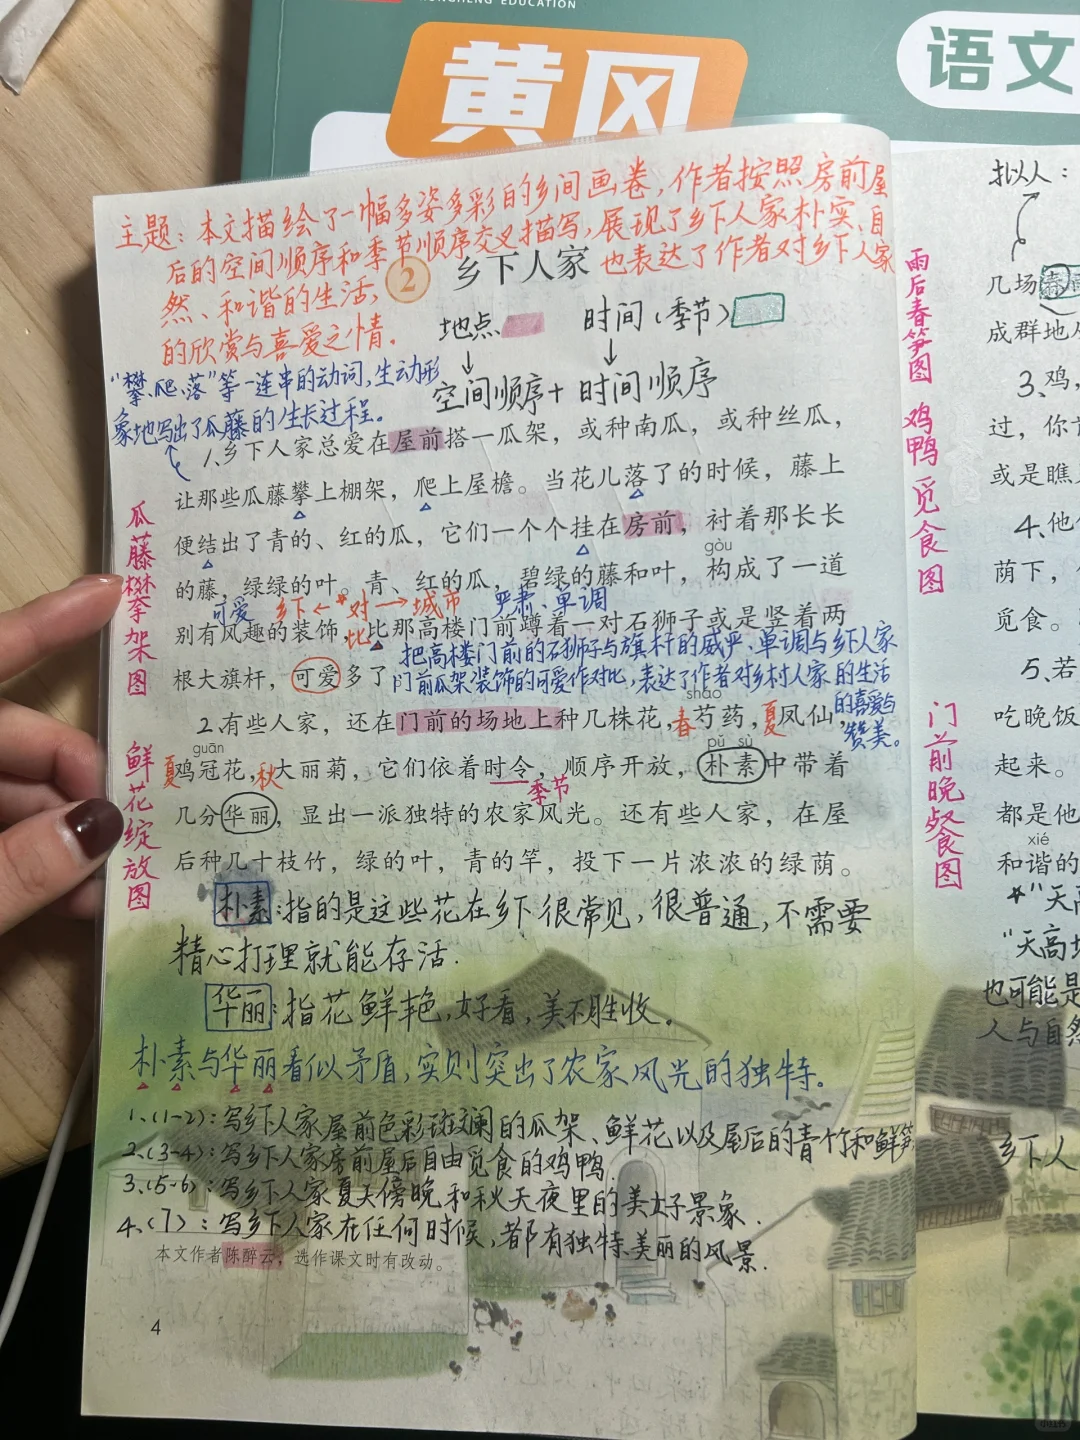 HONGHENG EDUCATION
黄冈
语文
主题：本文描绘了一幅多姿多彩的乡间画卷，作者按照房前屋
后的空间顺序和季节顺序交叉描写，展现了乡下人家朴实、自
然、和谐的生活，也表达了作者对乡下人家
的欣赏与喜爱之情。
2 乡下人家
地点 时间（季节）
空间顺序＋时间顺序
“攀、爬、落”等一连串的动词，生动形
象地写出了瓜藤的生长过程。
1、乡下人家总爱在屋前搭一瓜架，或种南瓜，或种丝瓜，
让那些瓜藤攀上棚架，爬上屋檐。当花儿落了的时候，藤上
便结出了青的、红的瓜，它们一个个挂在房前，衬着那长长
gòu
的藤，绿绿的叶。青、红的瓜，碧绿的藤和叶，构成了一道
可爱 乡下←对→城市 严肃、单调
比
别有风趣的装饰，比那高楼门前蹲着一对石狮子或是竖着两
把高楼门前的石狮子与旗杆的威严、单调与乡下人家
门前瓜架装饰的可爱作对比，表达了作者对乡村人家的生活
的喜爱与
赞美。
根大旗杆，可爱多了
sháo
2.有些人家，还在门前的场地上种几株花，春芍药，夏凤仙，
guān pǔ sù
夏鸡冠花，秋大丽菊，它们依着时令，顺序开放，朴素中带着
季节
几分华丽，显出一派独特的农家风光。还有些人家，在屋
后种几十枝竹，绿的叶，青的竿，投下一片浓浓的绿荫。
朴素：指的是这些花在乡下很常见，很普通，不需要
精心打理就能存活.
华丽：指花鲜艳，好看，美不胜收。
朴素与华丽看似矛盾，实则突出了农家风光的独特。
1、(1-2)：写乡下人家屋前色彩斑斓的瓜架、鲜花以及屋后的青竹和鲜笋
2、(3-4)：写乡下人家房前屋后自由觅食的鸡鸭.
3、(5-6)：写乡下人家夏天傍晚和秋天夜里的美好景象.
4、(7)：写乡下人家在任何时候，都有独特、美丽的风景.
本文作者陈醉云，选作课文时有改动。
4
瓜藤攀架图
鲜花绽放图
雨后春笋图
鸡鸭觅食图
门前晚餐图
拟人：
几场春
成群地从
3、鸡，
过，你
或是瞧
4、他
荫下，
觅食。
5、若
吃晚饭
起来。
都是他
xié
和谐的
*“天高
“天高地
也可能是
人与自然
乡下人